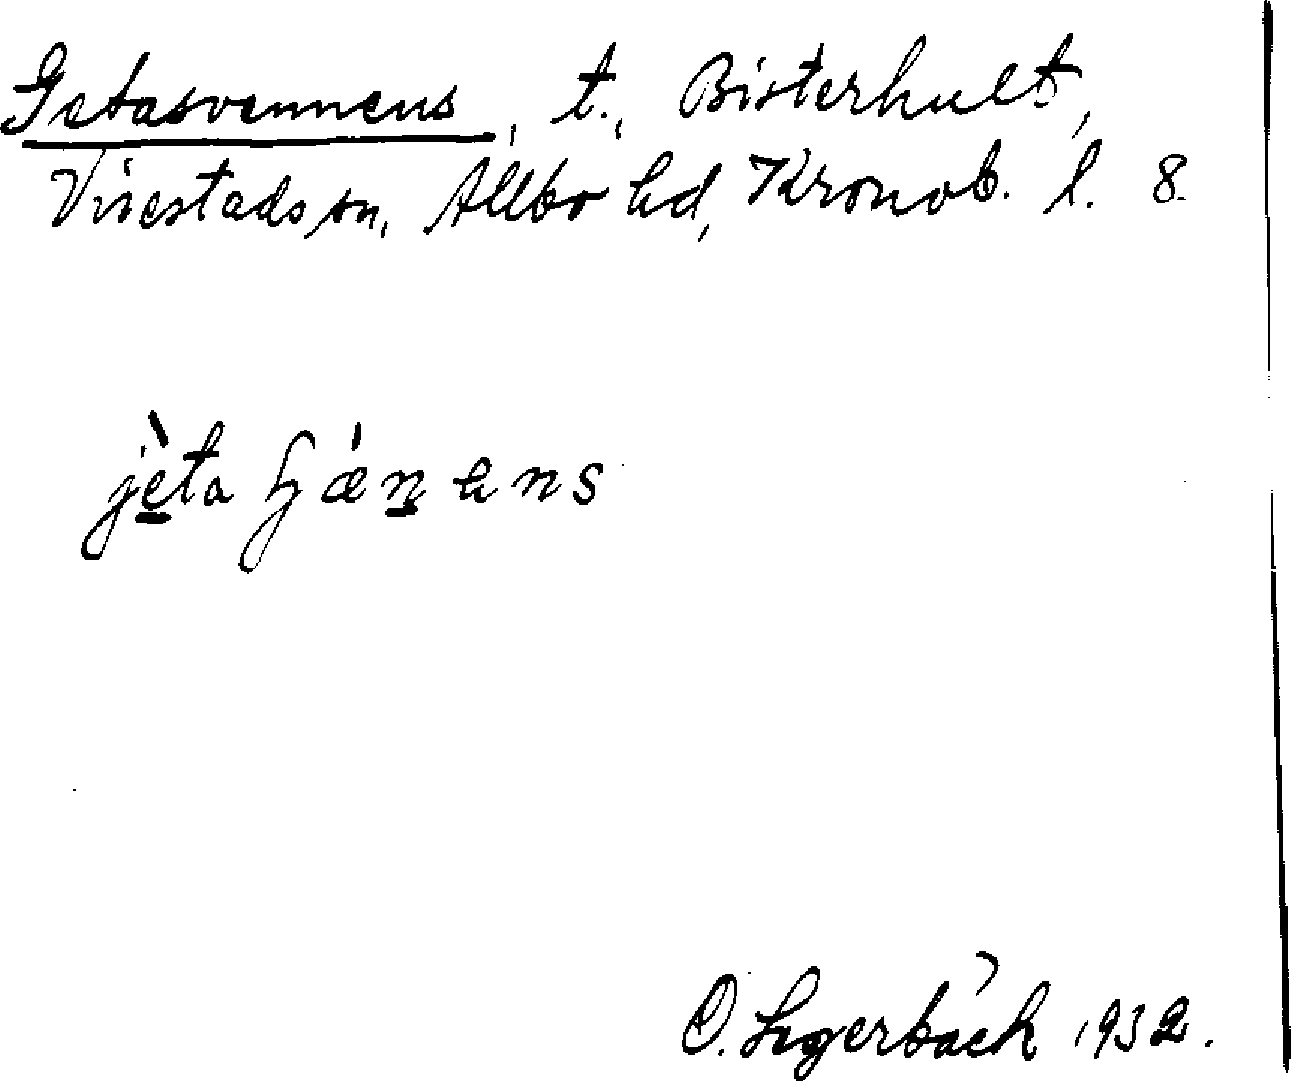 Getasvennens, t., Bisterhult,
Virestads sn, Allbo hd, Kronob. l. 8.
O. Lagerbäck 1932.